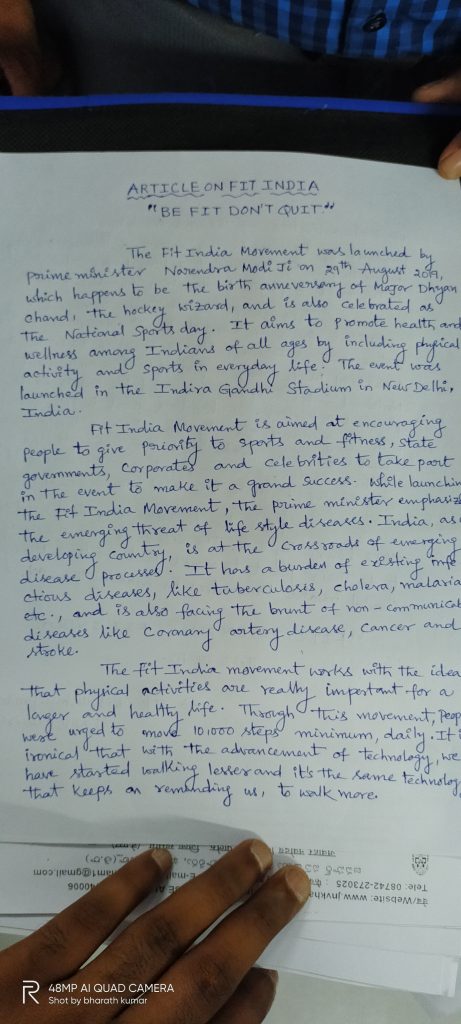 ARTICLE ON FIT INDIA
"BE FIT DON'T QUIT"
The Fit India Movement was launched by
prime minister Narendra Modi Ji on 29th August 2019,
which happens to be the birth anneversary of Major Dhyan
chand, the hockey wizard, and is also celebrated as
the National Sports day. It aims to promote health and
wellness among Indians of all ages by including physical
activity and sports in everyday life. The event was
launched in the Indira Gandhi Stadium in New Delhi,
India.
Fit India Movement is aimed at encouraging
people to give periority to sports and fitness, state
governments, corporates and celebrities to take part
in the event to make it a grand success. While launchin
the Fit India Movement, the prime minister emphasiz
the emerging threat of life style diseases. India, as
developing country, is at the crossroads of emerging
disease processes. It has a burden of existing infe
ctious diseases, like tuberculosis, cholera, malaria
etc., and is also facing the brunt of non-communicat
diseases like coronary artery disease, cancer and
stroke.
The fit India movement works with the idea
that physical activities are really important for a
larger and healthy life. Through this movement, Peop
were urged to move 10,000 steps minimum, daily. It i
ironical that with the advancement of technology, we
have started walking lesser and it's the same technology
that keeps on reminding us, to walk more.
Website: www.jnvkha
Tele: 08742-273025
E-mail
ham1@gmail.com
40006
48MP AI QUAD CAMERA
Shot by bharath kumar